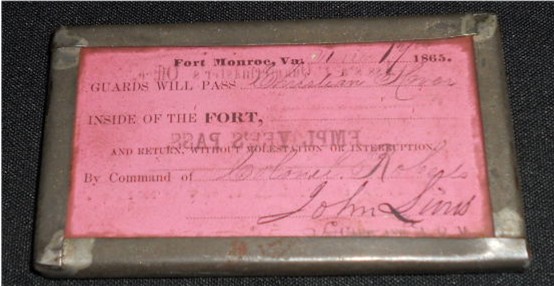 Fort Monroe, Va. 1865.
GUARDS WILL PASS Christian
INSIDE OF THE FORT,
EMPLOYEE'S PASS
AND RETURN, WITHOUT MOLESTATION OR INTERRUPTION.
By Command of Colonel Roberts
John